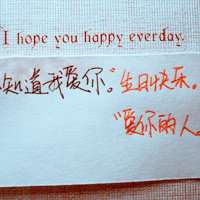 I hope you happy everday.
知道我爱你。”生日快乐。
“爱你的人。